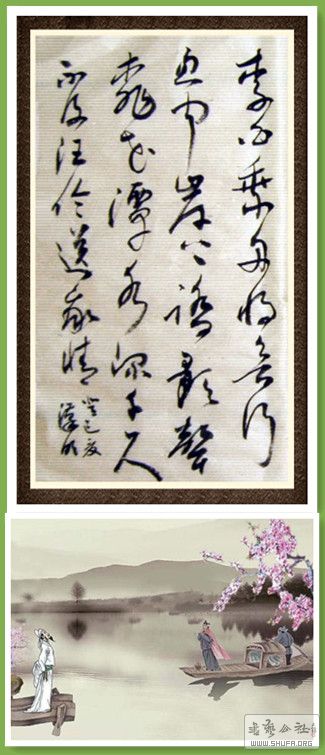 李白乘舟將欲行
忽聞岸上踏歌聲
桃花潭水深千尺
不及汪倫送我情
癸巳夏
书艺公社
WWW.SHUFA.ORG